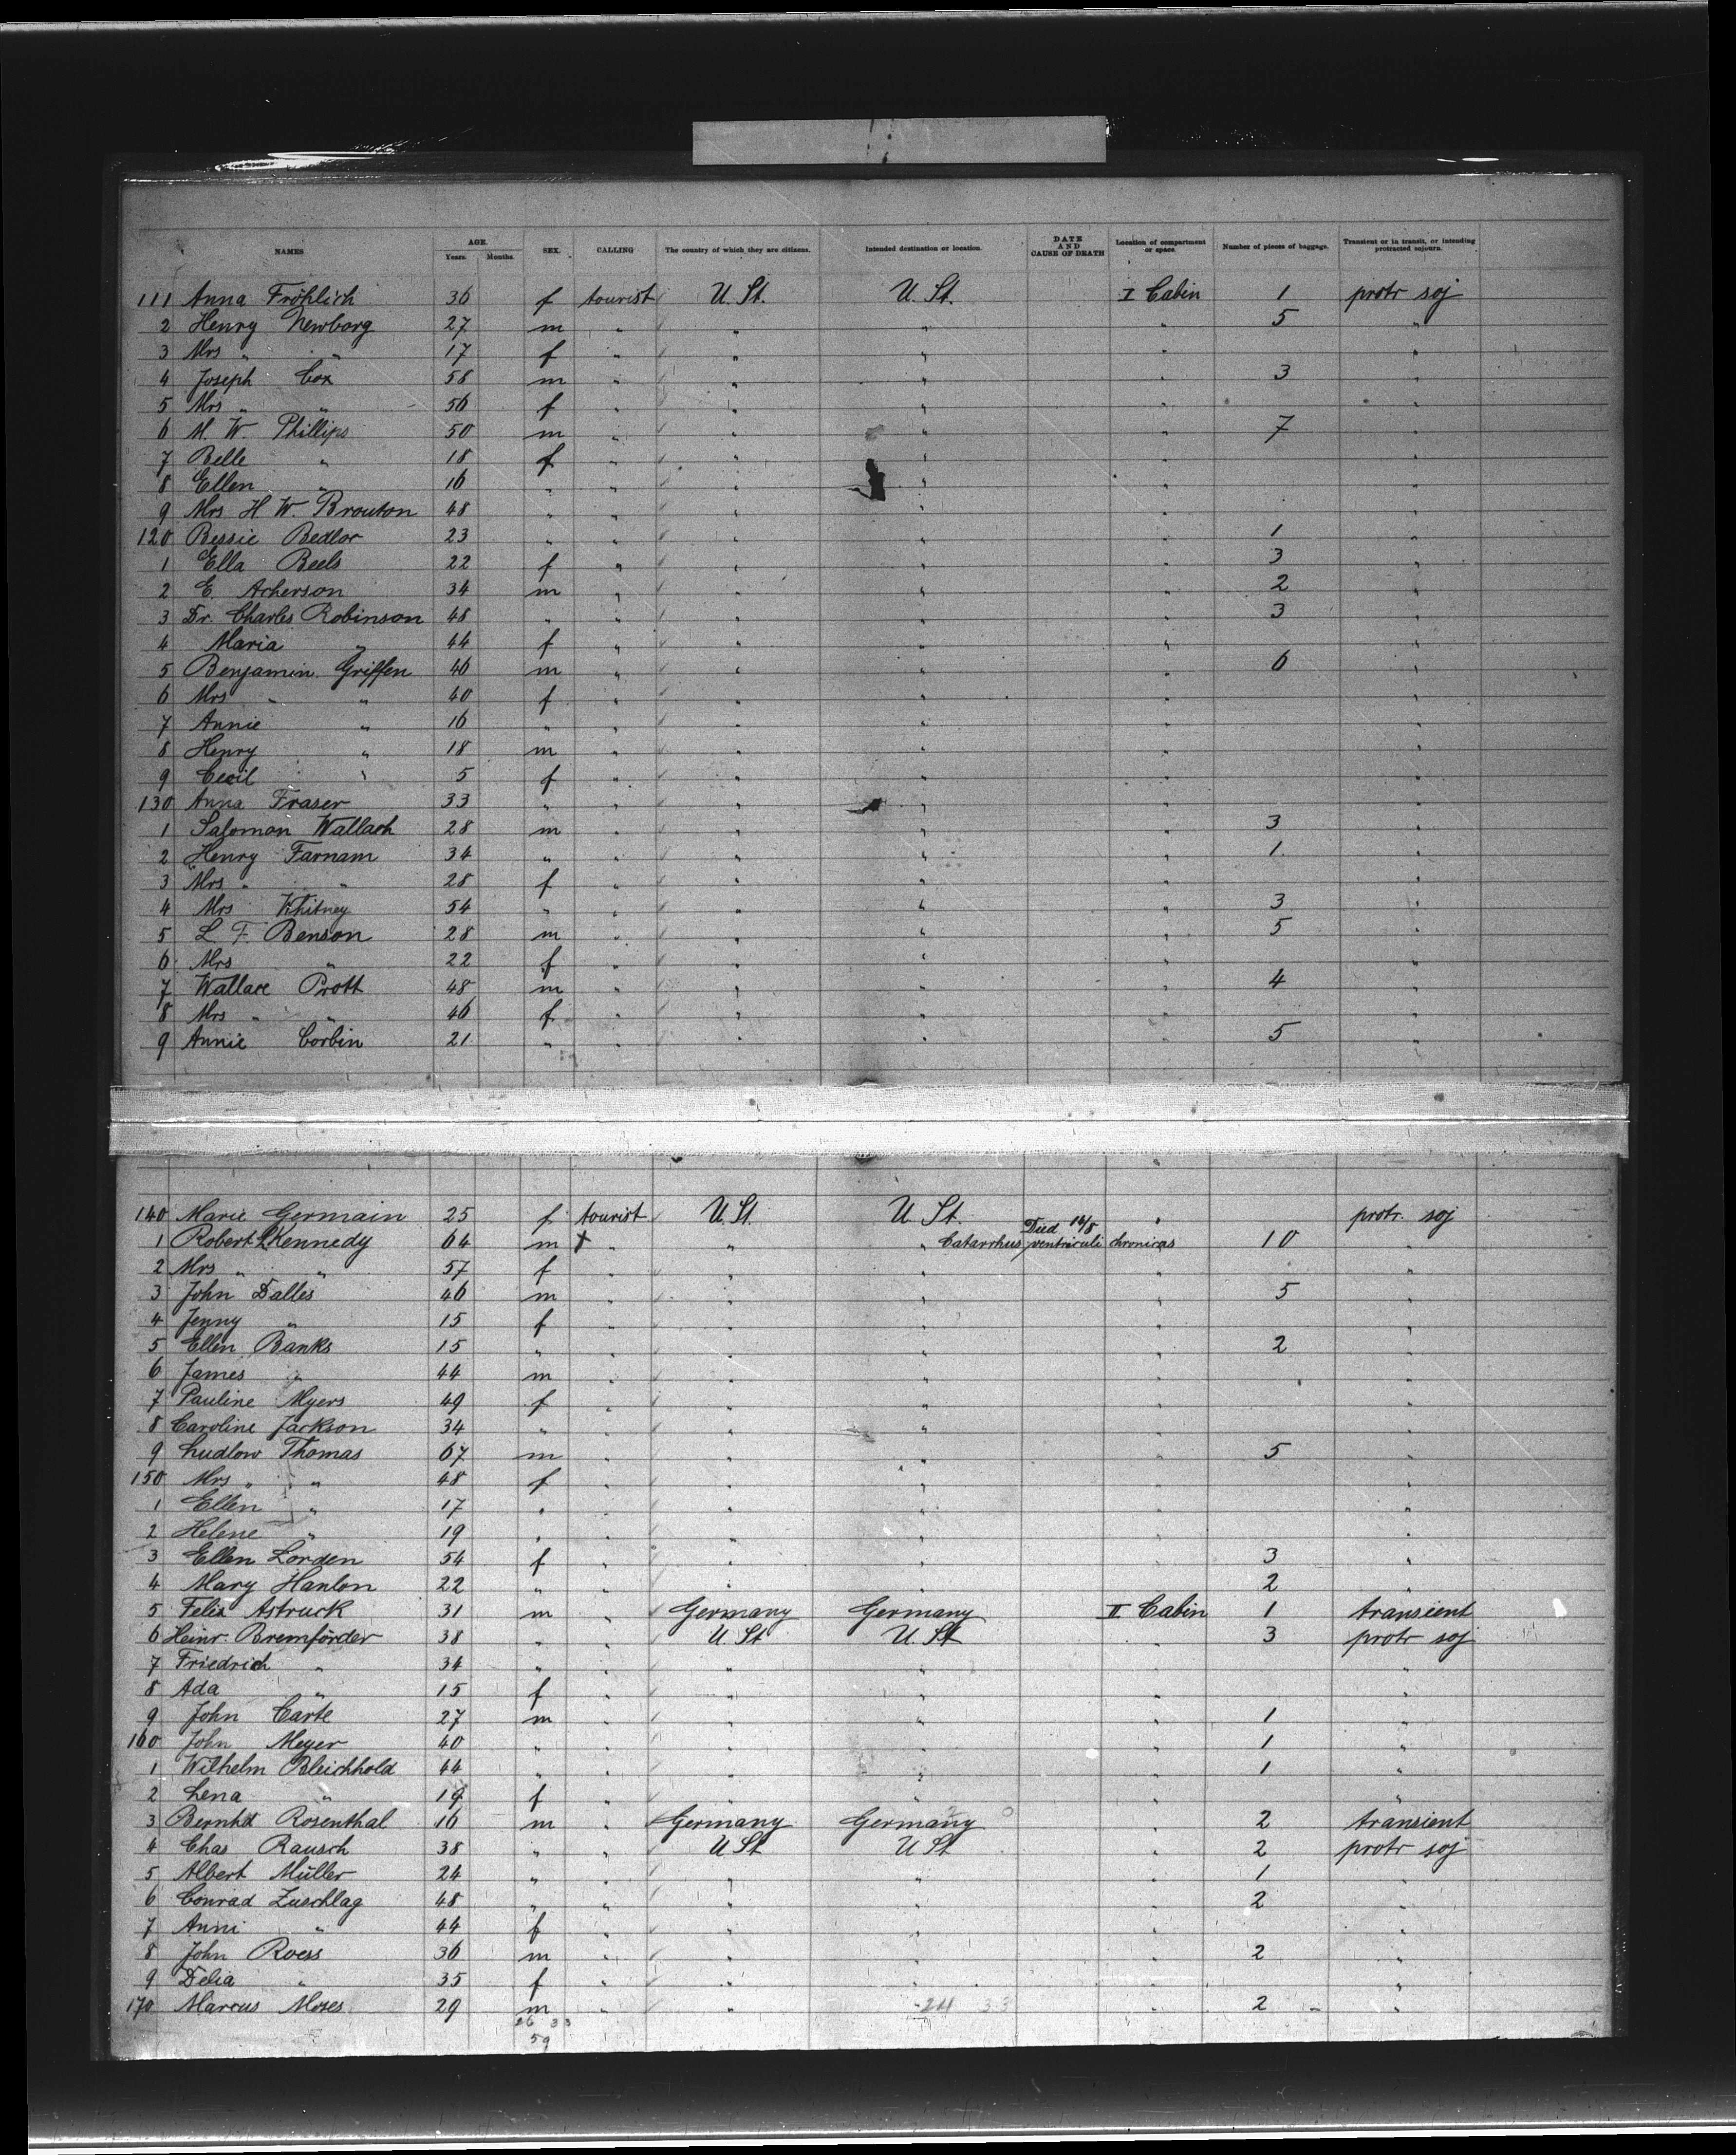 NAMES AGE. Years. Months. SEX. CALLING The country of which they are citizens. Intended destination or location. DATE AND CAUSE OF DEATH Location of compartment or space. Number of pieces of baggage. Transient or in transit, or intending protracted sojourn.
111 Anna Fröhlich 36 f tourist U. St. U. St. I Cabin 1 protr soj
2 Henry Newborg 27 m " " " " 5 "
3 Mrs " " 17 f " " " " "
4 Joseph Cox 58 m " " " " 3 "
5 Mrs " " 56 f " " " " "
6 M. W. Phillips 50 m " " " " 7 "
7 Belle " 18 f " " " " "
8 Ellen " 16 " " " " " "
9 Mrs H. W. Brouton 48 " " " " " "
120 Bessie Bedlor 23 " " " " " 1 "
1 Ella Beels 22 f " " " " 3 "
2 E. Acherson 34 m " " " " 2 "
3 Dr. Charles Robinson 48 " " " " " 3 "
4 Maria " 44 f " " " " "
5 Benjamin Griffen 46 m " " " " 6 "
6 Mrs " " 40 f " " " " "
7 Annie " 16 " " " " " "
8 Henry " 18 m " " " " "
9 Cecil " 5 f " " " " "
130 Anna Fraser 33 " " " " " "
1 Salomon Wallach 28 m " " " " 3 "
2 Henry Farnam 34 " " " " " 1 "
3 Mrs " " 28 f " " " " "
4 Mrs Whitney 54 " " " " " 3 "
5 L. F. Benson 28 m " " " " 5 "
6 Mrs " 22 f " " " " "
7 Wallace Prott 48 m " " " " 4 "
8 Mrs " " 46 f " " " " "
9 Annie Corbin 21 " " " " " 5 "
140 Marie Germain 25 f tourist U. St. U. St. " protr. soj
1 Robert Kennedy 64 m " " " Died 14/8 Catarrhus ventriculi chronicus 10 "
2 Mrs " " 57 f " " " " "
3 John Dalles 46 m " " " " 5 "
4 Jenny " 15 f " " " " "
5 Ellen Banks 15 " " " " " 2 "
6 James " 44 m " " " " "
7 Pauline Myers 49 f " " " " "
8 Caroline Jackson 34 " " " " " "
9 Ludlow Thomas 67 m " " " " 5 "
150 Mrs " " 48 f " " " " "
1 Ellen " 17 " " " " " "
2 Helene " 19 " " " " " "
3 Ellen Lorden 54 f " " " " 3 "
4 Mary Hanlon 22 " " " " " 2 "
5 Felix Astruck 31 m " Germany Germany II Cabin 1 transient
6 Heinr. Bremförder 38 " " U. St U. St " 3 protr soj
7 Friedrich " 34 " " " " " "
8 Ada " 15 f " " " " "
9 John Carte 27 m " " " " 1 "
160 John Meyer 40 " " " " " 1 "
1 Wilhelm Bleichhold 44 " " " " " 1 "
2 Lena " 19 f " " " " "
3 Bernhd Rosenthal 16 m " Germany Germany " 2 transient
4 Chas Rausch 38 " " U St U St " 2 protr soj
5 Albert Müller 24 " " " " " 1 "
6 Conrad Zuschlag 48 " " " " " 2 "
7 Anni " 44 f " " " " "
8 John Roess 36 m " " " " 2 "
9 Delia " 35 f " " " " "
170 Marcus Moses 29 m " " " 2 "
26 33
59